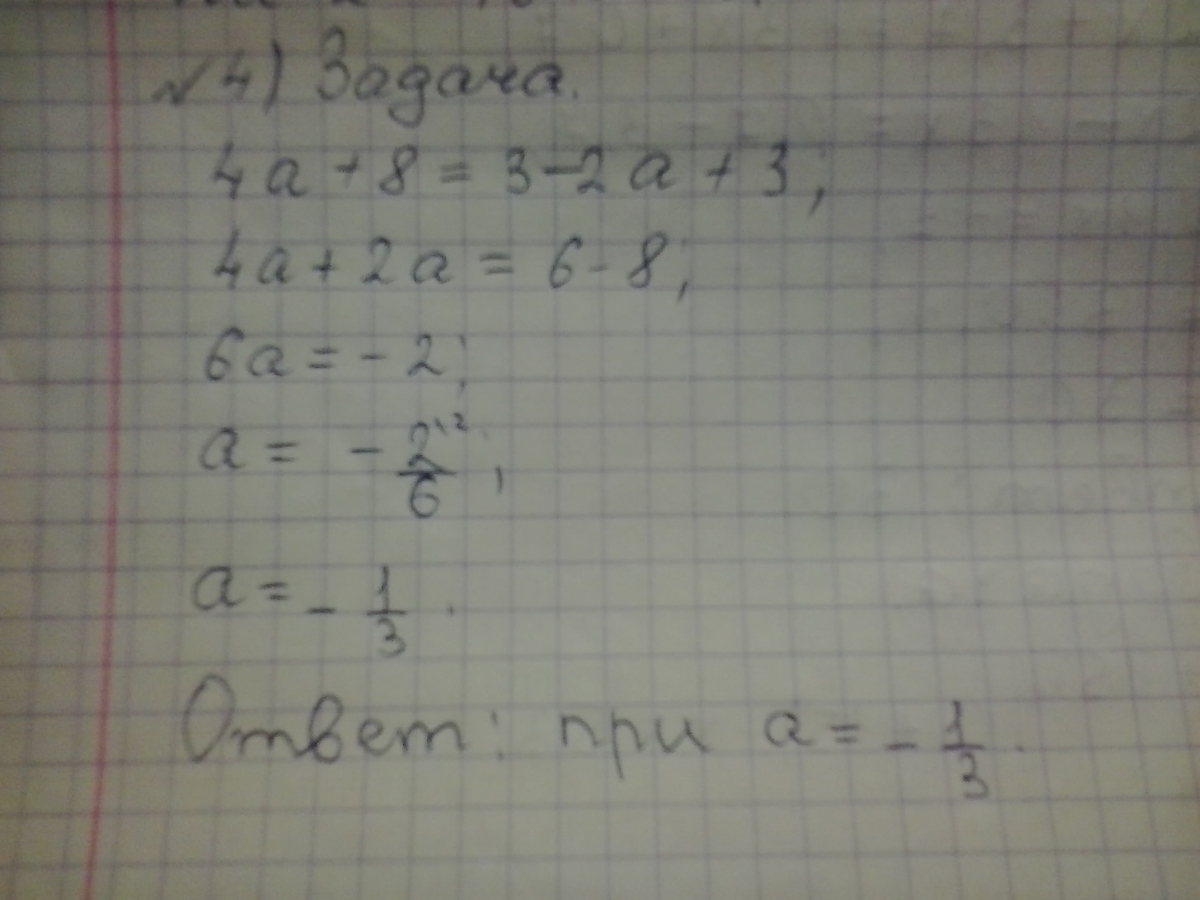 №4) Задача.
4a + 8 = 3 - 2a + 3;
4a + 2a = 6 - 8;
6a = - 2;
a = - 2\2/6;
a = - 1/3.
Ответ: при a = - 1/3.